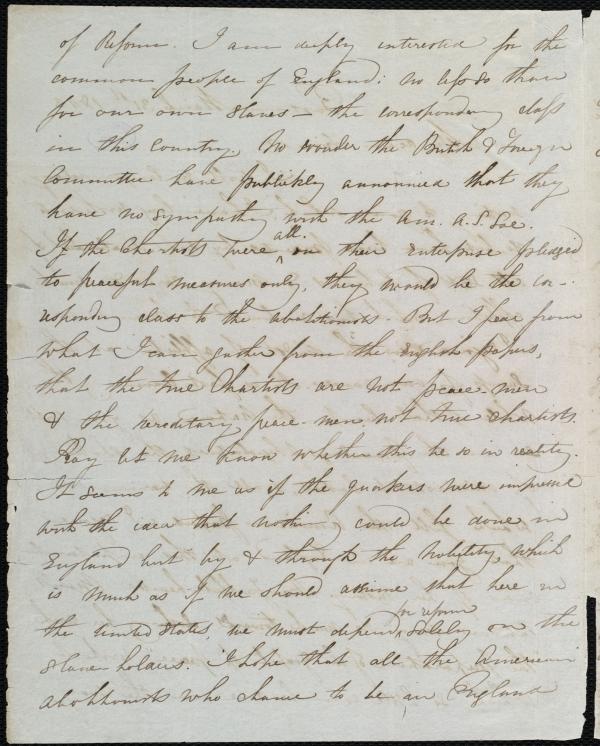 of Reform. I am deeply interested for the
common people of England; no less so than
for our own slaves — the corresponding class
in this country. No wonder the British & Foreign
Committee have publickly announced that they
have no sympathy with the Am. A. S. Soc.
If the Chartists were all on their enterprise pledged
to peaceful measures only, they would be the cor-
responding class to the abolitionists. But I fear from
what I can gather from the English papers,
that the true Chartists are not peace-men
& the hereditary peace-men not true chartists.
Pray let me know whether this be so in reality.
It seems to me as if the quakers were impressed
with the idea that nothing could be done in
England but by & through the Nobility, which
is much as if we should assume that here in
the United States, we must depend, for reform solely on the
slave holders. I hope that all the American
abolitionists who chance to be in England